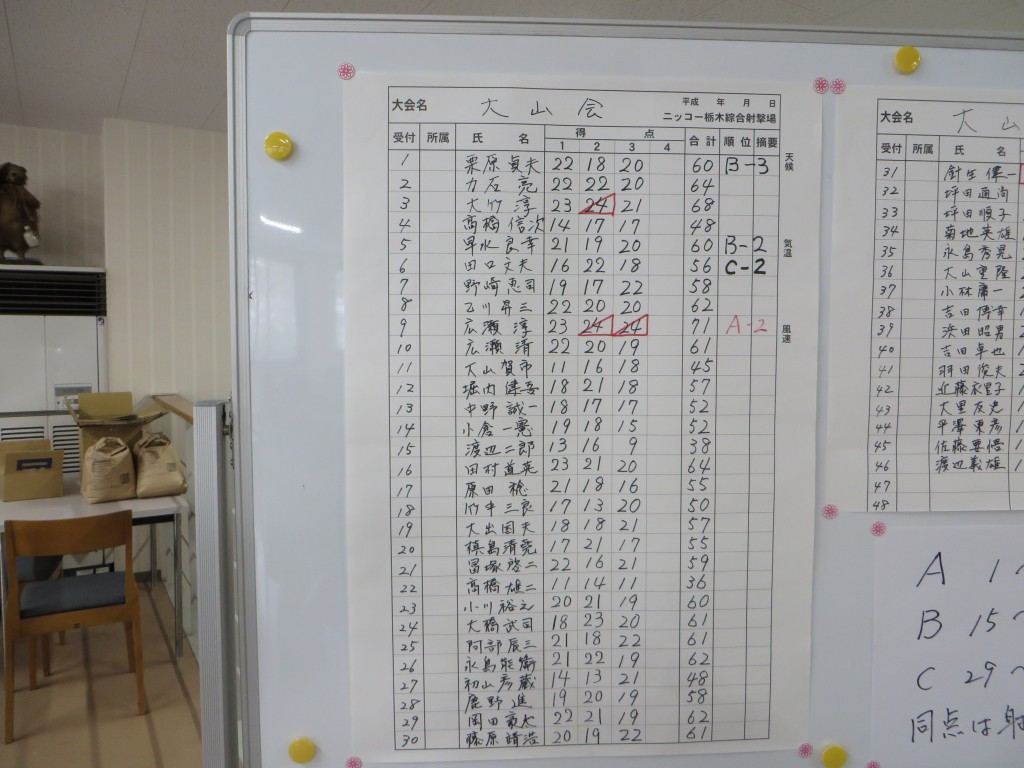 大会名 大山会 平成 年 月 日
ニッコー栃木綜合射撃場
受付 所属 氏 名 得 点 合計 順位 摘要
1 2 3 4
天候
気温
風速
1 栗原貞夫 22 18 20 60 B-3
2 力石 亮 22 22 20 64
3 大竹 淳 23 24 21 68
4 高橋信次 14 17 17 48
5 早水良幸 21 19 20 60 B-2
6 田口文夫 16 22 18 56 C-2
7 野崎恵司 19 17 22 58
8 乙川昇三 22 20 20 62
9 広瀬 淳 23 24 24 71 A-2
10 広瀬 清 22 20 19 61
11 大山賀市 11 16 18 45
12 堀内 18 21 18 57
13 中野誠一 18 17 17 52
14 小倉一 19 18 15 52
15 渡辺二郎 13 16 9 38
16 田村 23 21 20 64
17 原田 稔 21 18 16 55
18 竹中三良 17 13 20 50
19 大出国夫 18 18 21 57
20 17 21 17 55
21 冨塚啓二 22 16 21 59
22 高橋雄二 11 14 11 36
23 小川裕之 20 21 19 60
24 大橋武司 18 23 20 61
25 阿部辰三 21 18 22 61
26 永島 21 22 19 62
27 初山彦蔵 14 13 21 48
28 鹿野 進 19 20 19 58
29 岡田 22 21 19 62
30 藤原晴浩 20 19 22 61
大会名 大山
受付 所属 氏 名
31 針生
32 坪田直尚
33 坪田順子
34 菊地英雄
35 永島秀晃
36 大山重隆
37 小林 一
38 吉田博幸
39 浜田昭男
40 吉田卓也
41 羽田俊夫
42 近藤衣里子
43 大里友忠
44 平澤
45 佐藤
46 渡辺義雄
47
48
A 1~
B 15~
C 29~
同点は射